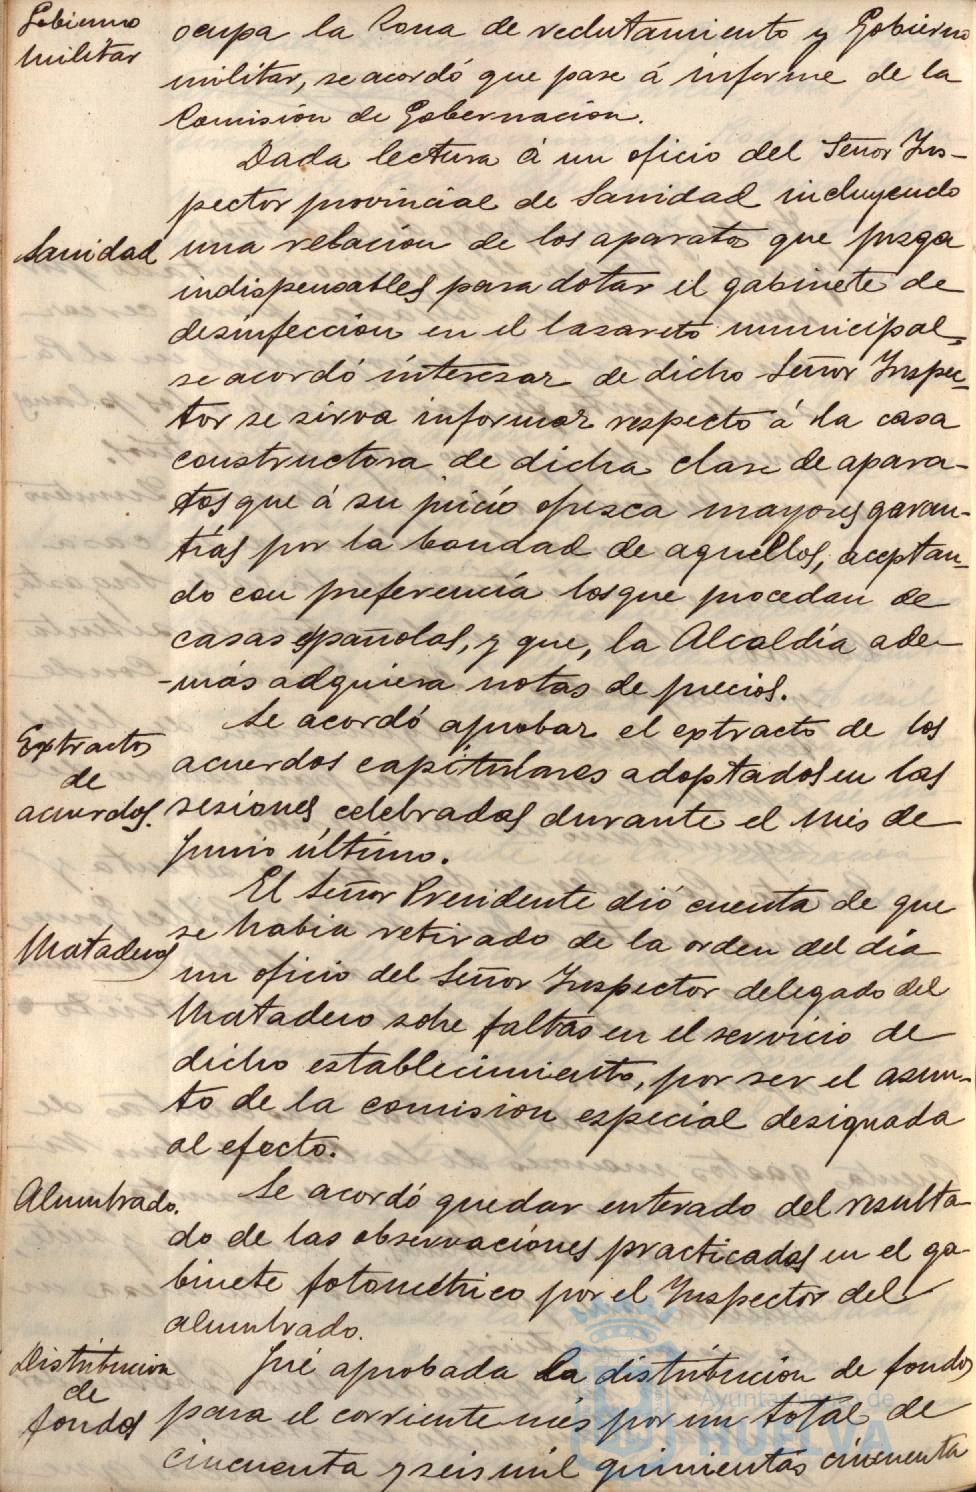 Gobierno
militar
ocupa la Zona de reclutamiento y Gobierno
militar, se acordó que pase á informe de la
Comisión de Gobernación.
Dada lectura á un oficio del Señor Ins-
pector provincial de Sanidad incluyendo
Sanidad
una relación de los aparatos que juzga
indispensables para dotar el gabinete de
desinfección en el lazareto municipal,
se acordó interesar de dicho Señor Inspec-
tor se sirva informar respecto á la casa
constructora de dicha clase de apara-
tos que á su juicio ofrezca mayores garan-
tías por la bondad de aquellos, aceptan-
do con preferencia los que procedan de
casas españolas, y que, la Alcaldía ade-
-más adquiera notas de precios.
Extractos
de
acuerdos.
Se acordó aprobar el extracto de los
acuerdos capitulares adoptados en las
sesiones celebradas durante el mes de
Junio último.
El Señor Presidente dió cuenta de que
Matadero
se habia retirado de la orden del dia
un oficio del Señor Inspector delegado del
Matadero sobre faltas en el servicio de
dicho establecimiento, por ser el asun-
to de la comision especial designada
al efecto.
Alumbrado.
Se acordó quedar enterado del resulta-
do de las observaciones practicadas en el ga-
binete fotométrico por el Inspector del
alumbrado.
Distribucion
de
fondos
Fué aprobada la distribución de fondos
para el corriente més por un total de
cincuenta y seis mil quinientas cincuenta
Ayuntamiento de
HUELVA